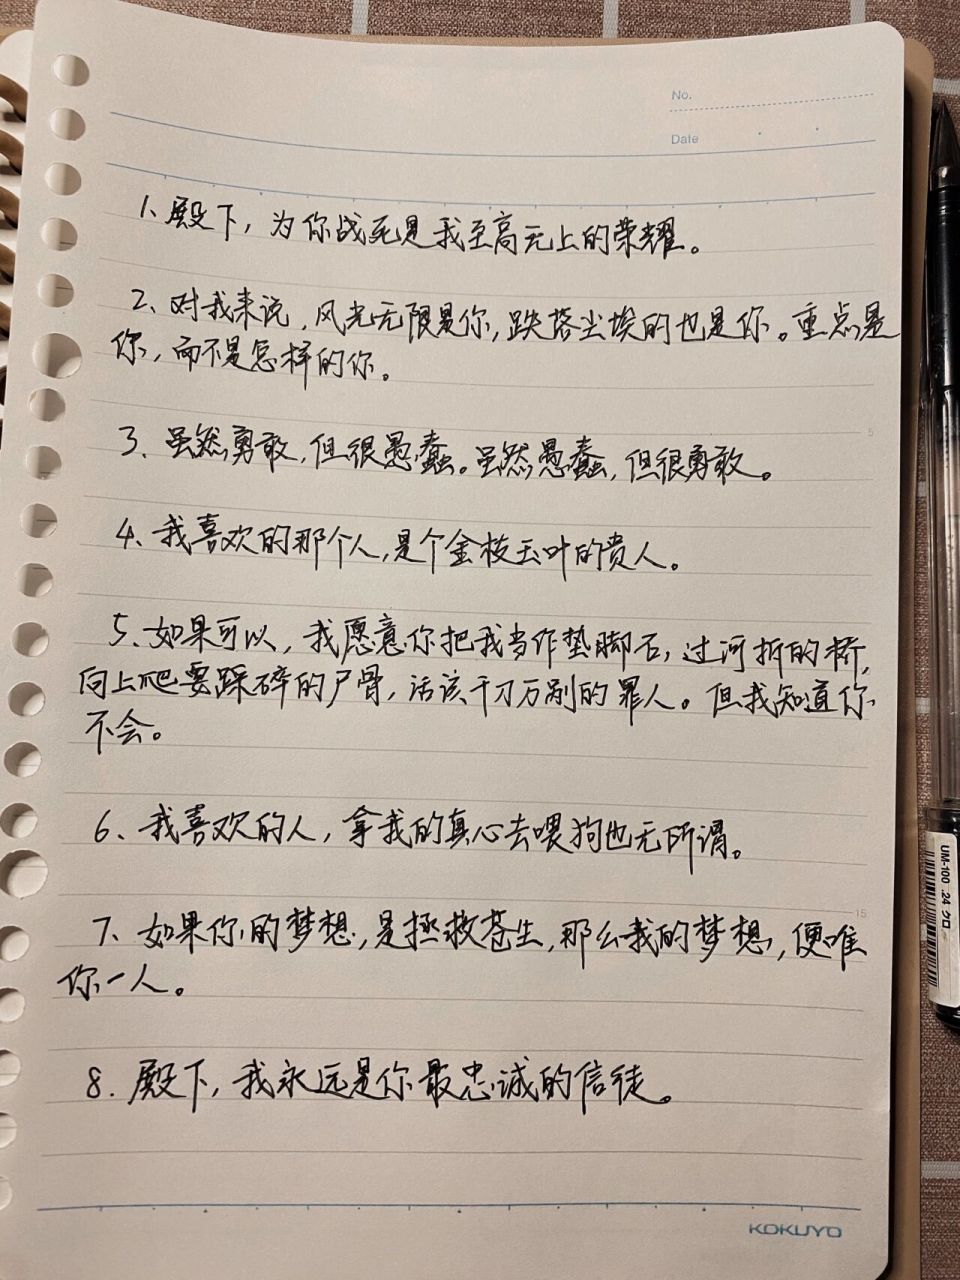 No.
Date
1、殿下，为你战死是我至高无上的荣耀。
2、对我来说，风光无限是你，跌落尘埃的也是你。重点是
你，而不是怎样的你。
3、虽然勇敢，但很愚蠢。虽然愚蠢，但很勇敢。
4、我喜欢的那个人，是个金枝玉叶的贵人。
5、如果可以，我愿意你把我当作垫脚石，过河拆的桥，
向上爬要踩碎的尸骨，活该千刀万剐的罪人。但我知道你
不会。
6、我喜欢的人，拿我的真心去喂狗也无所谓。
7、如果你的梦想，是拯救苍生，那么我的梦想，便唯
你一人。
8.殿下，我永远是你最忠诚的信徒。
5
15
KOKUYO
UM-100 .24 クロ